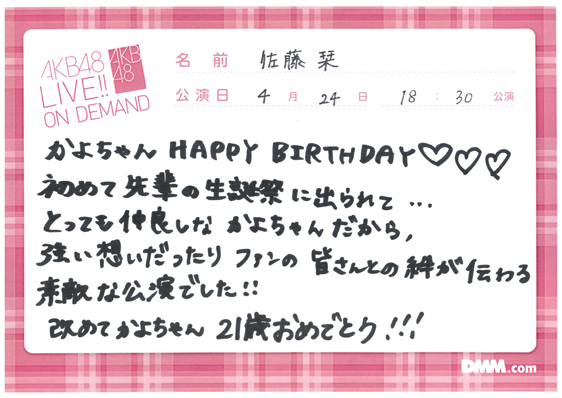 AKB48
LIVE!!
ON DEMAND
AKB
48
名前 佐藤 栞
公演日 4月 24日 18:30 公演
かよちゃん HAPPY BIRTHDAY♡♡♡
初めて先輩の生誕祭に出られて...
とっても仲良しな かよちゃんだから,
強い想いだったり ファンの 皆さんとの絆が伝わる
素敵な公演でした!!
改めてかよちゃん 21歳おめでとう!!!
DMM.com